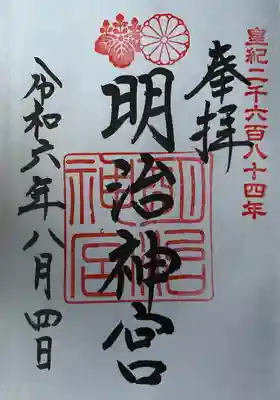 皇紀二千六百八十四年
奉拝
明治神宮
明治神宮
令和六年八月四日